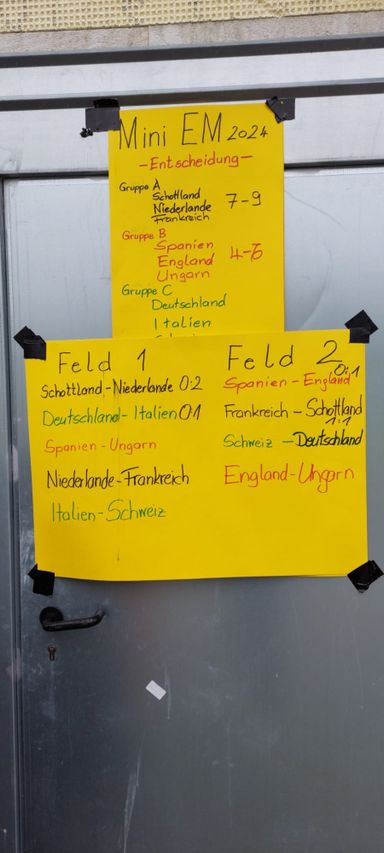 Mini EM 2024
-Entscheidung-
Gruppe A
Schottland
Niederlande 7-9
Frankreich
Gruppe B
Spanien
England 4-6
Ungarn
Gruppe C
Deutschland
Italien
Feld 1
Schottland-Niederlande 0:2
Deutschland-Italien 0:1
Spanien-Ungarn
Niederlande-Frankreich
Italien-Schweiz
Feld 2
0:1
Spanien-England
Frankreich-Schottland
1:1
Schweiz-Deutschland
England-Ungarn